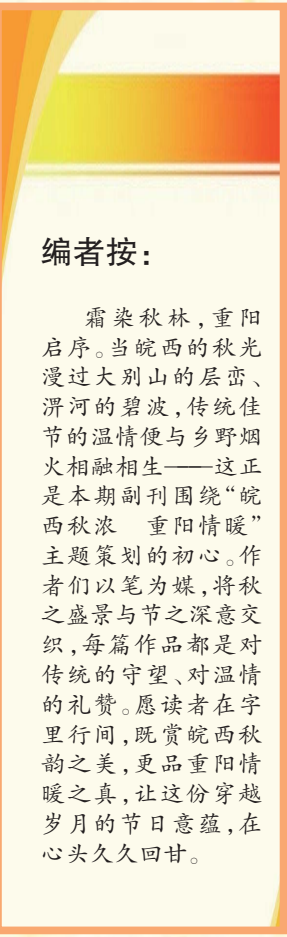 编者按：
霜染秋林，重阳
启序。当皖西的秋光
漫过大别山的层峦、
淠河的碧波，传统佳
节的温情便与乡野烟
火相融相生——这正
是本期副刊围绕“皖
西秋浓　重阳情暖”
主题策划的初心。作
者们以笔为媒，将秋
之盛景与节之深意交
织，每篇作品都是对
传统的守望、对温情
的礼赞。愿读者在字
里行间，既赏皖西秋
韵之美，更品重阳情
暖之真，让这份穿越
岁月的节日意蕴，在
心头久久回甘。